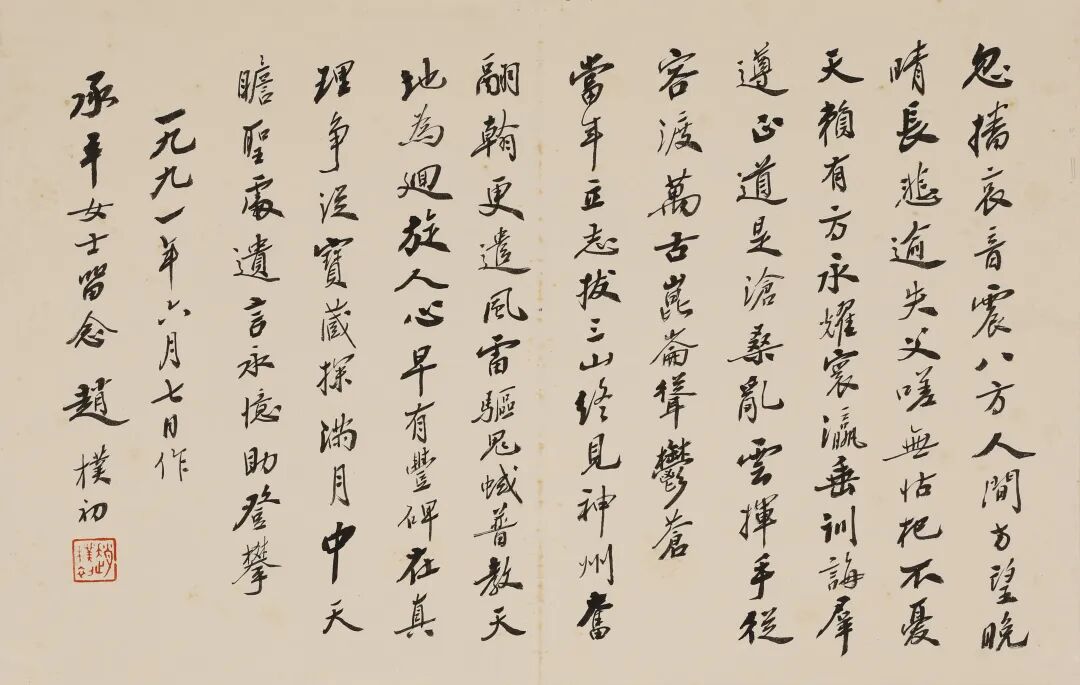 忽播哀音震八方人間方望晚
晴長悲逾失父嗟無怙杞不憂
天賴有方永耀寰瀛垂訓誨羣
遵正道是滄桑亂雲揮手從
容渡萬古崑崙聳鬱蒼
當年立志拔三山終見神州奮
翮翰更遣風雷驅鬼蜮普教天
地為迴旋人心早有豐碑在真
理爭從寶藏探滿月中天
瞻聖處遺言永憶助登攀
一九九一年六月七日作
承平女士留念 趙樸初
趙樸初